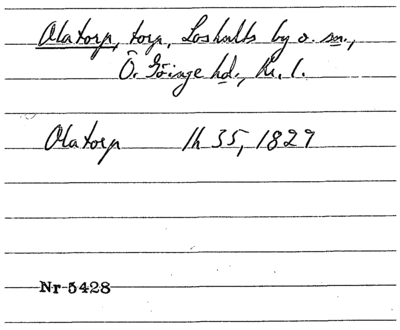 Olatorp, torp, Loshults by o. sn.,
Ö. Göinge hd., Kr. l.
Olatorp lh 35, 1829
Nr 5428